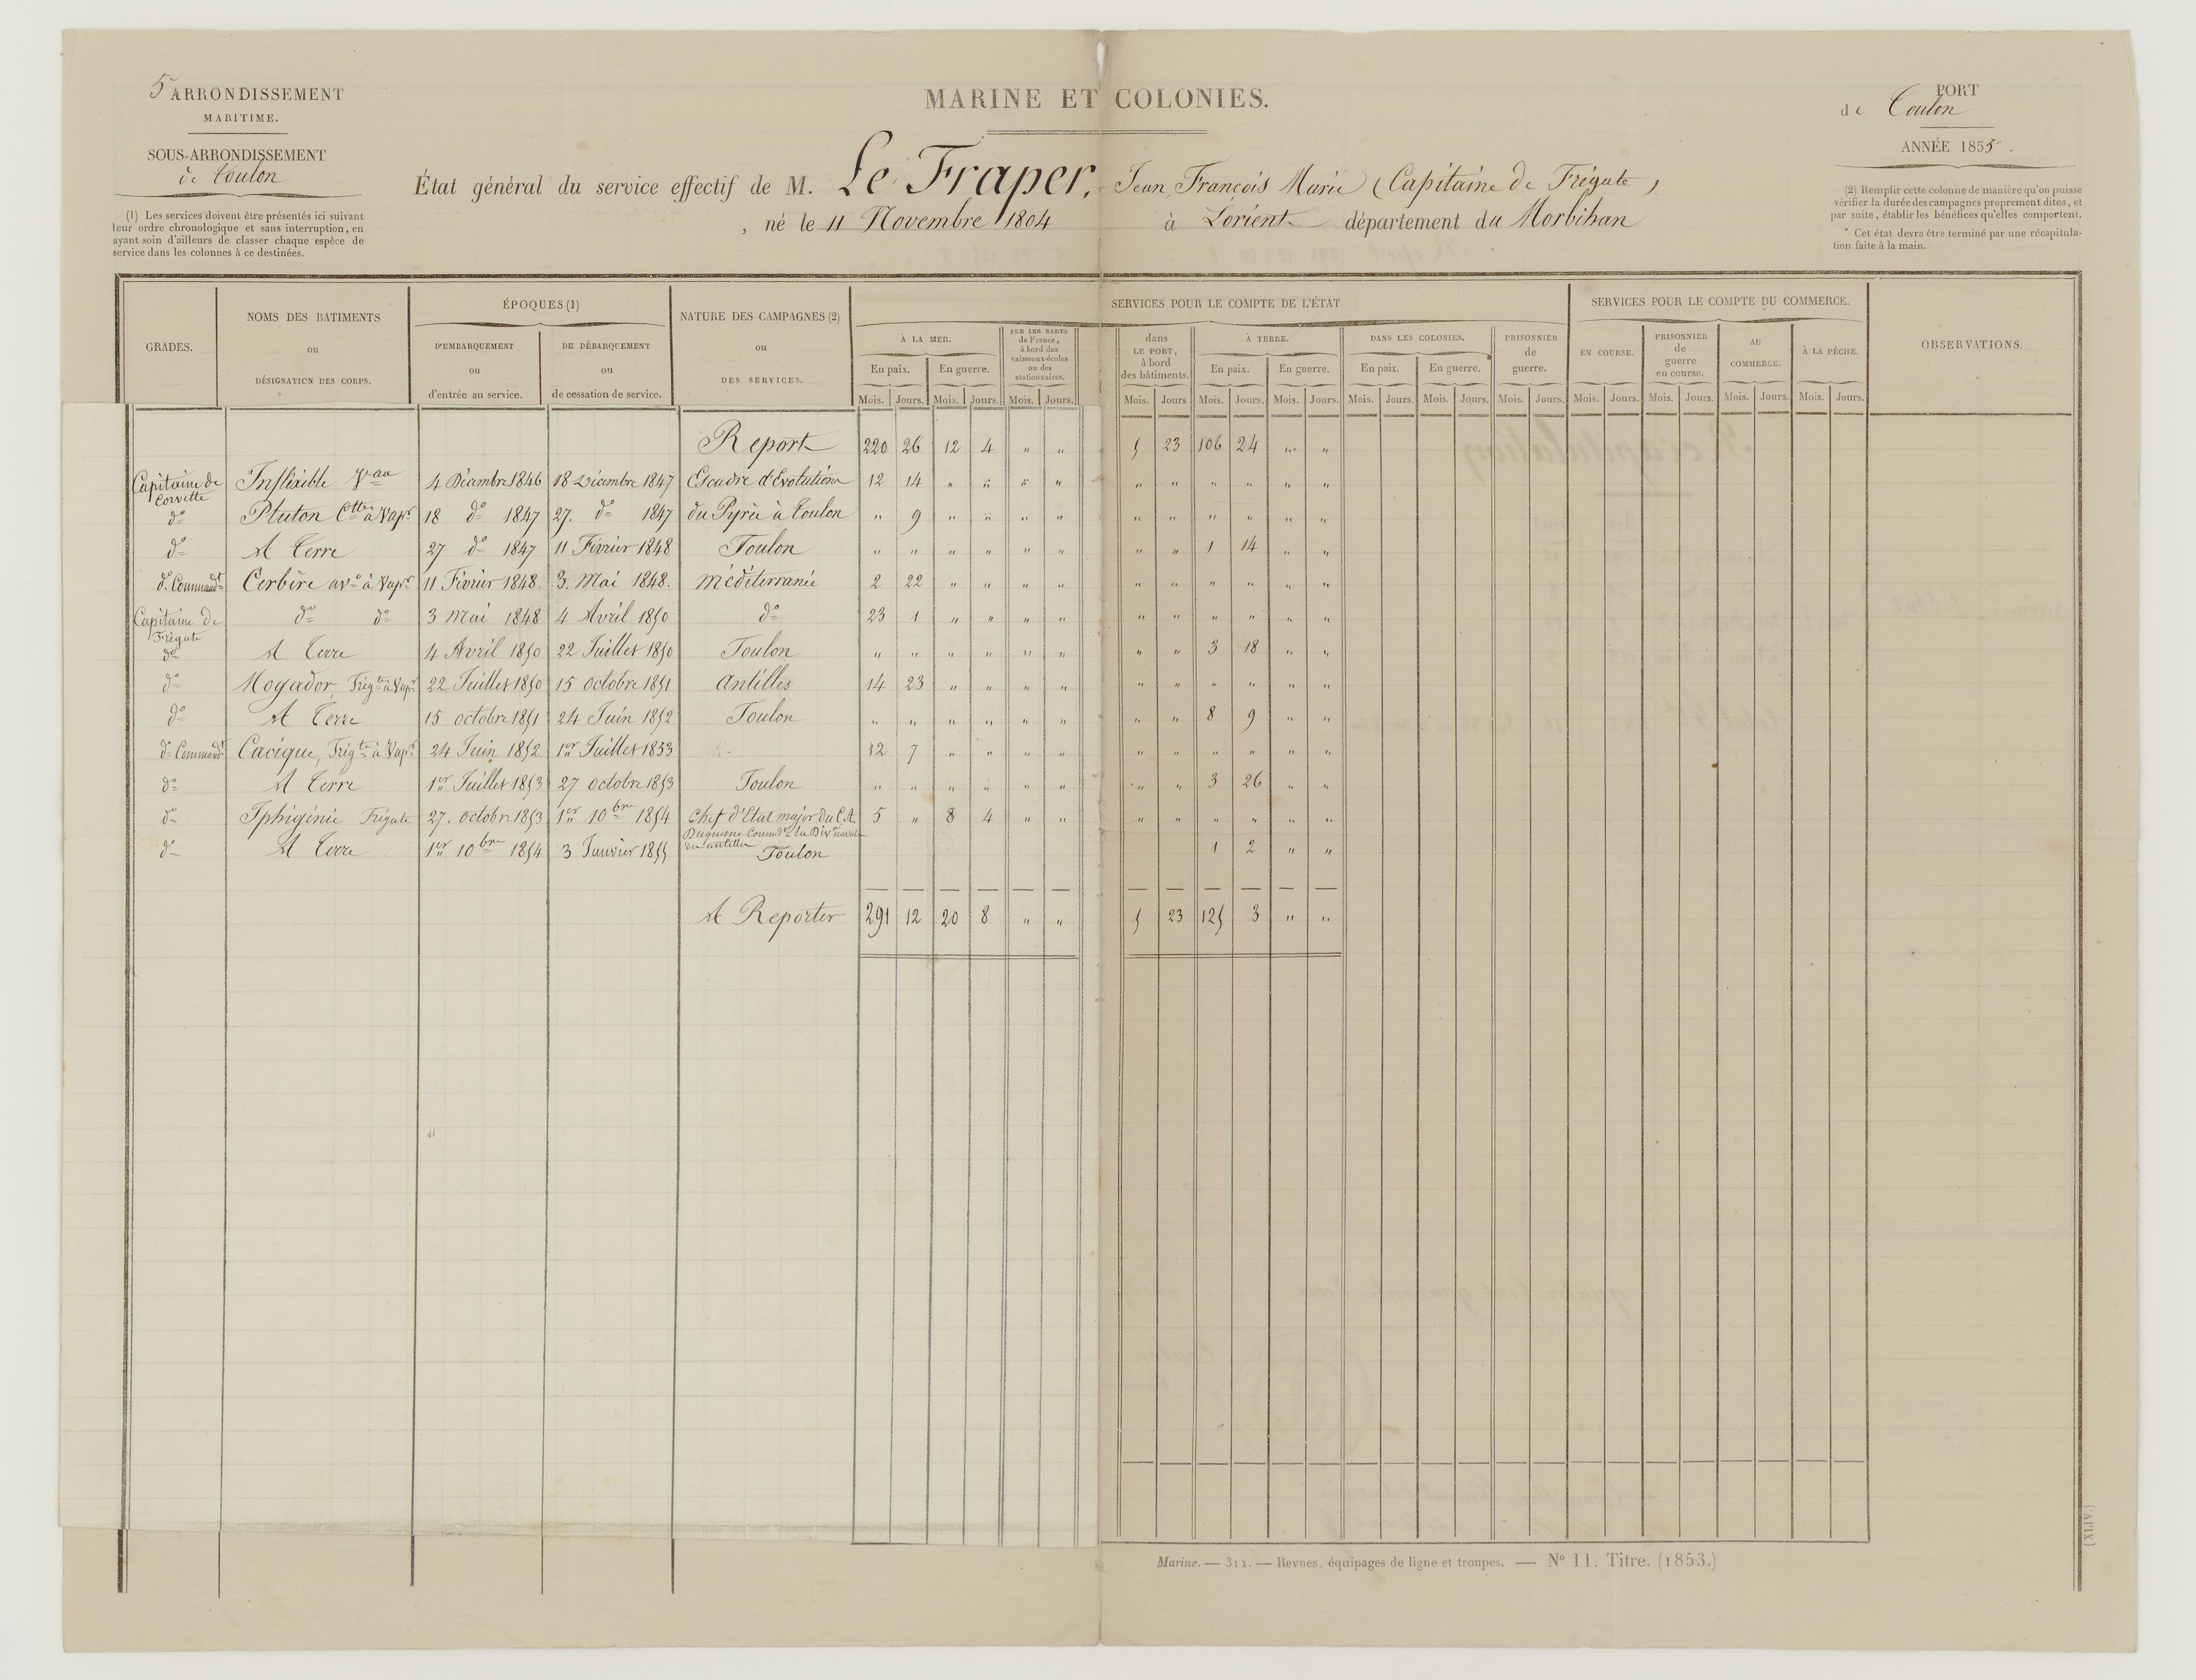 5 ARRONDISSEMENT
MARITIME.
SOUS-ARRONDISSEMENT
de Toulon
(1) Les services doivent être présentés ici suivant
leur ordre chronologique et sans interruption, en
ayant soin d'ailleurs de classer chaque espèce de
service dans les colonnes à ce destinées.
MARINE ET COLONIES.
État général du service effectif de M. Le Fraper, Jean, François Marie (Capitaine de Frégate)
, né le 11 Novembre 1804 à Lorient département du Morbihan
PORT
de Toulon
ANNÉE 1855.
(2) Remplir cette colonne de manière qu'on puisse
vérifier la durée des campagnes proprement dites, et
par suite, établir les bénéfices qu'elles comportent.
* Cet état devra être terminé par une récapitula-
tion faite à la main.
GRADES.
NOMS DES BATIMENTS
ou
DÉSIGNATION DES CORPS.
ÉPOQUES (1)
D'EMBARQUEMENT
ou
d'entrée au service.
DE DÉBARQUEMENT
ou
de cessation de service.
NATURE DES CAMPAGNES (2)
ou
DES SERVICES.
SERVICES POUR LE COMPTE DE L'ÉTAT
À LA MER.
En paix. En guerre.
SUR LES RADES
de France,
à bord des
vaisseaux-écoles
ou des
stationnaires.
dans
LE PORT,
à bord
des bâtiments.
À TERRE.
En paix. En guerre.
DANS LES COLONIES.
En paix. En guerre.
PRISONNIER
de
guerre.
SERVICES POUR LE COMPTE DU COMMERCE.
EN COURSE.
PRISONNIER
de
guerre
en course.
AU
COMMERCE.
À LA PÊCHE.
OBSERVATIONS.
Mois. Jours. Mois. Jours. Mois. Jours. Mois. Jours Mois. Jours. Mois. Jours. Mois. Jours. Mois. Jours. Mois. Jours. Mois. Jours. Mois. Jours. Mois. Jours. Mois. Jours.
Report 220 26 12 4 " " 5 23 106 24 " "
Capitaine de Corvette Inflexible Vau 4 Décembre 1846 18 Décembre 1847 Escadre d'Evolutions 12 14 " " " " " " " " " "
do Pluton Ctte à Vapr 18 do 1847 27. do 1847 du Pyrée à Toulon " 9 " " " " " " " " " "
do A Terre 27 do 1847 11 Février 1848 Toulon " " " " " " " " 1 14 " "
do Commandt Cerbère avo à Vapr 11 Février 1848. 3. Mai 1848. Méditerranée 2 22 " " " " " " " " " "
Capitaine de Frégate do do 3 Mai 1848 4 Avril 1850 do 23 1 " " " " " " " " " "
do A Terre 4 Avril 1850 22 Juillet 1850 Toulon " " " " " " " " 3 18 " "
do Mogador, Frégte à Vapr 22 Juillet 1850 15 octobre 1851 Antilles 14 23 " " " " " " " " " "
do A Terre 15 octobre 1851 24 Juin 1852 Toulon " " " " " " " " 8 9 " "
do Commandt Cacique, Frégte à Vapr 24 Juin 1852 1er Juillet 1833 12 7 " " " " " " " " " "
do A Terre 1er Juillet 1853 27 octobre 1853 Toulon " " " " " " " " 3 26 " "
do Iphigénie Frégate 27. octobre 1853 1er 10bre 1854 Chef d'Etat major du C.A. 5 " 8 4 " " " " " " " "
Duquesne Commdt la Divon navale
des antilles
do A Terre 1er 10bre 1854 3 Janvier 1855 Toulon 1 2 " "
A Reporter 291 12 20 8 " " 5 23 125 3 " "
Marine. — 311. — Revues, équipages de ligne et troupes. — No 11. Titre. (1853.)
(XLIV.)